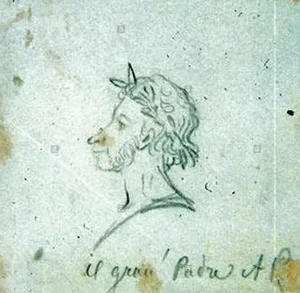 il gran' Padre AP.